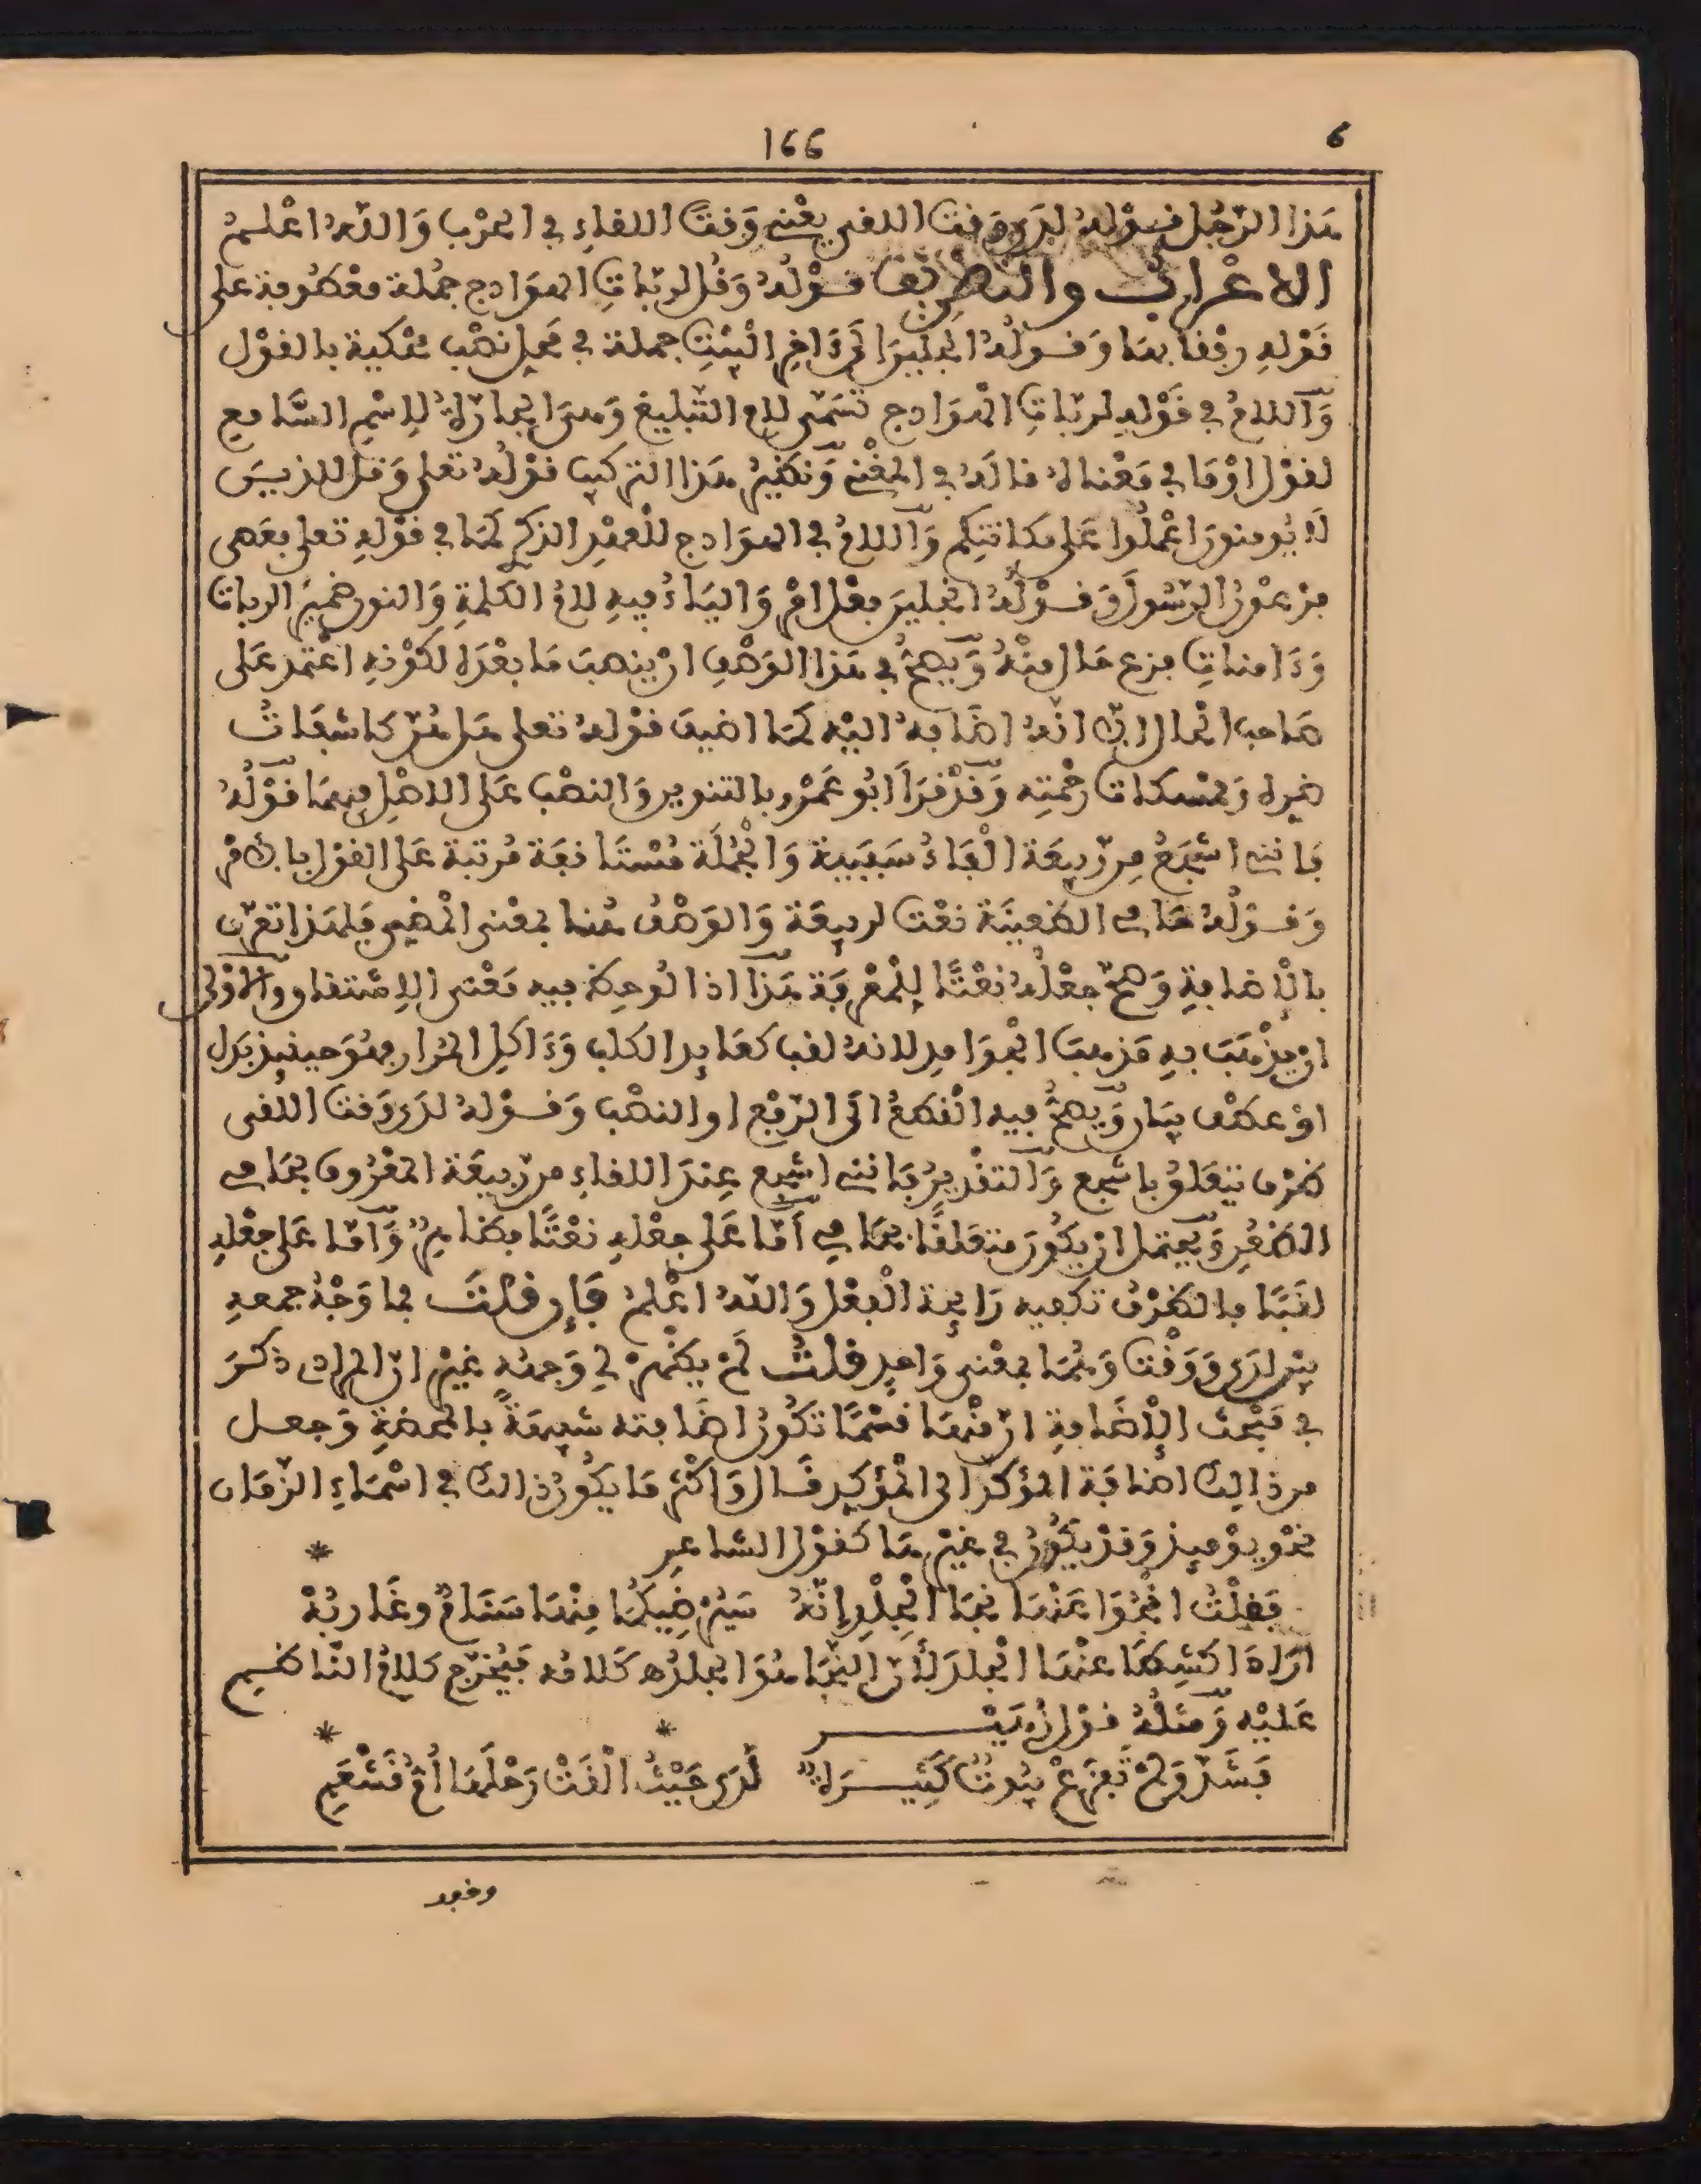 166
6
هذا الرجل قوله لدى وقت اللقى يعنى وقت اللقاء في الحرب والله اعلم
الاعراب والتطريف قوله وقل لربات الهوادج جملة معطوفة على
قوله رفقا بها وقوله انجلين الى ءاخر البيت جملة في محل نصب محكية بالقول
واللام في قوله لربات الهوادج تسمى لام التبليغ وهى الجارة للاسم السامع
لقول او ما في معناه قاله في المغنى ونظير هذا التركيب قوله تعلى وقل للذيـن
لا يومنون اعملوا على مكانتكم واللام في الهوادج للعهد الذكرى كما في قوله تعلى فعصى
فرعون الرسول وقوله انجلين فعل امر والياء فيه لام الكلمة والنون ضمير الربات
وءامنات فزع حال منه ويصح في هذا الوصف ان ينصب ما بعده لكونه اعتمد على
صاحب الحال الا انه اضافه اليه كما اضيف قوله تعلى هل هن كاشفات
ضره وممسكات رحمته وقد قرا ابو عمرو بالتنوين والنصب على الاصل فيهما قوله
فاننى اشجع من ربيعة الفاء سببية والجملة مستانفة مرتبة على القول بالامر
وقوله حامى الظعينة نعت لربيعة والوصف هنا بمعنى المضى فلهذا تعرف
بالاضافة وصح جعله نعتا للمعرفة هذا اذا لوحظ فيه معنى الاشتقاق والاولى
ان يذهب به مذهب الجوامد لانه لقب كعايد الكلب وءاكل المرار فهو حينئذ بدل
او عطف بيان ويصح فيه القطع الى الرفع او النصب وقوله لدى وقت اللقى
ظرف يتعلق باشجع والتقدير فاننى اشجع عند اللقاء من ربيعة المعروف بحامى
الظعن ويحتمل ان يكون متعلقا بحامى اما على جعله نعتا فظاهر واما على جعله
لقبا فالظرف تكفيه رايحة الفعل والله اعلم فإن قلت فما وجه جمعه
بين لدى ووقت وهما بمعنى واحد قلت لم يظهر لى وجهه غير ان المرادى ذكر
في مبحث الاضافة ان منها قسما تكون اضافته شبيهة بالمحضة وجعل
من ذالك اضافة المؤكد الى المؤكد قال واكثر ما يكون ذالك في اسماء الزمان
نحو يومئذ وقد يكون في غيرها كقول الشاعر *
فقلت انجوا عنها نجا الجلد إنه سيرضيكما منها سنام وغاربه
اراد اكشطا عنها الجلد لأن النجا هو الجلد كلامه فيخرج كلام الناظم
عليه ومثله قول زهيـر * *
فشد ولم تفزع بيوت كثيـرة لدى حيث القت رحلها ام قشعم
وقود